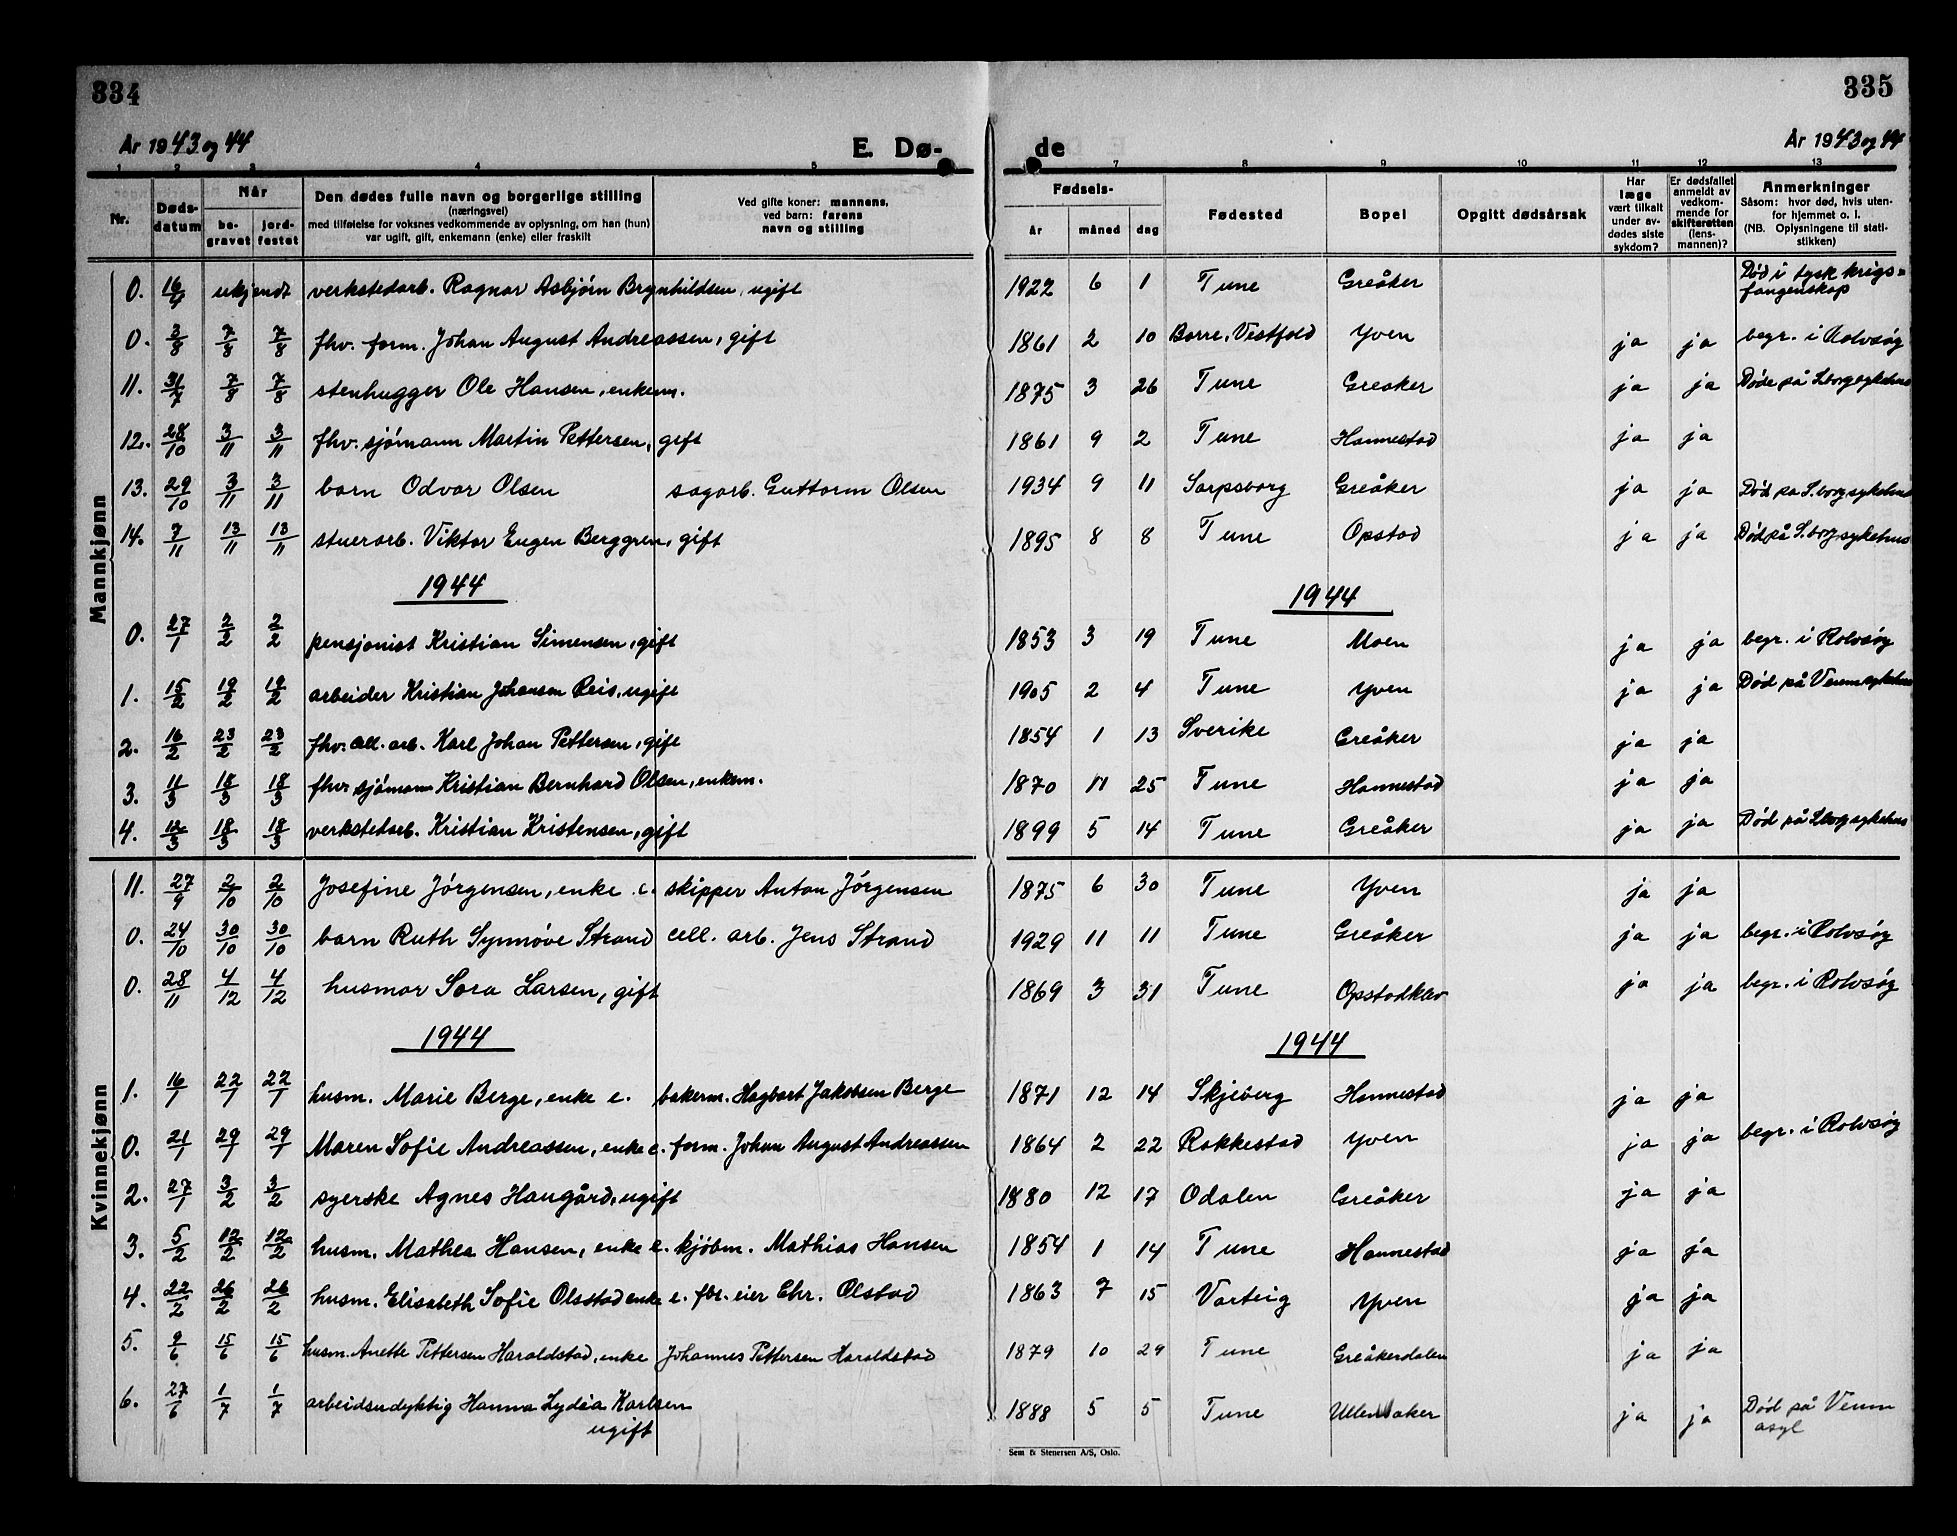 334
335
År 1943 og 44
E. Dø-
de
År 1943 og 44
1 2 3 4 5 7 8 9 10 11 12 13
Nr.
Døds-
datum
Når
be-
gravet
jord-
festet
Den dødes fulle navn og borgerlige stilling
(næringsvei)
med tilføielse for voksnes vedkommende av oplysning, om han (hun)
var ugift, gift, enkemann (enke) eller fraskilt
Ved gifte koner: mannens,
ved barn: farens
navn og stilling
Fødsels-
år
måned
dag
Fødested
Bopel
Opgitt dødsårsak
Har
læge
vært tilkalt
under av-
dødes siste
sykdom?
Er dødsfallet
anmeldt av
vedkom-
mende for
skifteretten
(lens-
mannen)?
Anmerkninger
Såsom: hvor død, hvis uten-
for hjemmet o. l.
(NB. Oplysningene til stati-
stikken)
Mannkjønn
0. 16/4 ukjendt verkstedarb. Ragnar Asbjørn Brynhildsen, ugift 1922 6 1 Tune Greåker Død i tysk krigs-
fangenskap
0. 3/8 7/8 7/8 fhv. form. Johan August Andreassen, gift 1861 2 10 Borre, Vestfold Yven ja ja begr. i Rolvsøy
11. 31/7 7/8 7/8 stenhugger Ole Hansen, enkem. 1875 3 26 Tune Greaker ja ja Døde på S.borg sykehus
12. 28/10 3/11 3/11 fhv. sjømann Martin Pettersen, gift 1861 9 2 Tune Hannestad ja ja
13. 29/10 3/11 3/11 barn Odvar Olsen sagarb. Guttorm Olsen 1934 9 11 Sarpsborg Greåker ja ja Død på S.borg sykehus
14. 7/11 13/11 13/11 stuerarb. Viktor Eugen Berggren, gift 1895 8 8 Tune Opstad ja ja Død på S.borg sykehus
1944 1944
0. 27/1 2/2 2/2 pensjonist Kristian Simensen, gift 1853 3 19 Tune Moen ja ja begr. i Rolvsøy
1. 15/2 19/2 19/2 arbeider Kristian Johansen Reis, ugift 1905 2 4 Tune Yven ja ja Død på Veum sykehus
2. 16/2 23/2 23/2 fhv. cell. arb. Karl Johan Pettersen, gift 1854 1 13 Sverike Greåker ja ja
3. 11/3 18/3 18/3 fhv. sjømann Kristian Bernhard Olsen, enkem. 1870 11 25 Tune Hannestad ja ja
4. 12/3 18/3 18/3 verkstedarb. Kristian Kristensen, gift 1899 5 14 Tune Greåker ja ja Død på S.borg sykehus
Kvinnekjønn
11. 27/9 2/10 2/10 Josefine Jørgensen, enke e. skipper Anton Jørgensen 1875 6 30 Tune Yven ja ja
0. 24/10 30/10 30/10 barn Ruth Synnøve Strand cell. arb. Jens Strand 1929 11 11 Tune Greåker ja ja begr. i Rolvsøy
0. 28/11 4/12 4/12 husmor Sora Larsen, gift 1869 3 31 Tune Opstadklev ja ja begr. i Rolvsøy
1944 1944
1. 16/1 22/1 22/1 husm. Marie Berge, enke e. bakerm. Hagbart Jakobsen Berge 1871 12 14 Skjeberg Hannestad ja ja
0. 21/1 29/1 29/1 Maren Sofie Andreassen, enke e. form. Johan August Andreassen 1864 2 22 Rakkestad Yven ja ja begr. i Rolvsøy
2. 27/1 3/2 3/2 syerske Agnes Haugård, ugift 1880 12 17 Odalen Greåker ja ja
3. 5/2 12/2 12/2 husm. Mathea Hansen, enke e. kjøbm. Mathias Hansen 1854 1 14 Tune Hannestad ja ja
4. 22/2 26/2 26/2 husm. Elisabeth Sofie Olsstad enke e. fbr. eier Chr. Olstad 1863 7 15 Varteig Yven ja ja
5. 9/6 15/6 15/6 husm. Anette Pettersen Haraldstad, enke Johannes Pettersen Haraldstad 1879 10 29 Tune Greåkerdalen ja ja
6. 27/6 1/7 1/7 arbeidsudyktig Hanna Lydia Karlsen
ugift 1888 5 5 Tune Ullensaker ja ja Død på Veum
asyl
Sem & Stenersen A/S, Oslo.